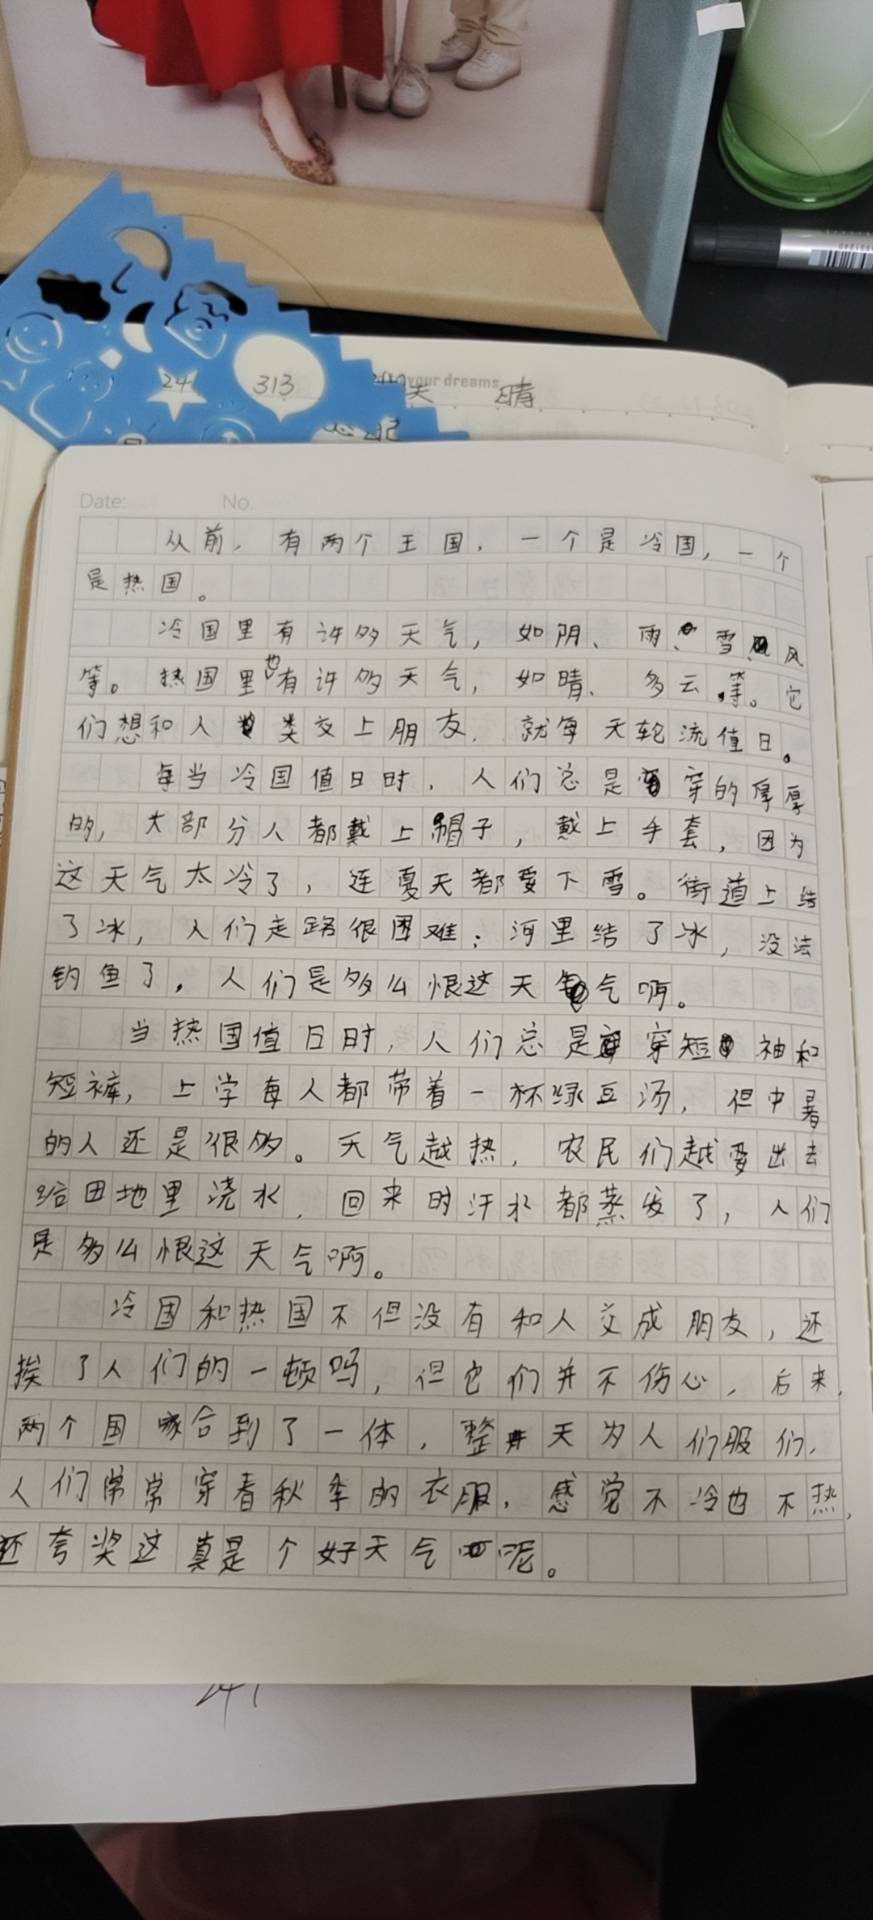 your dreams
天 晴
24
313
Date:
No.
从前，有两个王国，一个是冷国，一个
是热国。
冷国里有许多天气，如阴、雨、雪、风
等。热国里也有许多天气，如晴、多云等。它
们想和人类交上朋友，就每天轮流值日。
每当冷国值日时，人们总是穿的厚厚
的，大部分人都戴上帽子，戴上手套，因为
这天气太冷了，连夏天都要下雪。街道上结
了冰，人们走路很困难；河里结了冰，没法
钓鱼了，人们是多么恨这天气啊。
当热国值日时，人们总是穿短袖和
短裤，上学每人都带着一杯绿豆汤，但中暑
的人还是很多。天气越热，农民们越要出去
给田地里浇水，回来时汗水都蒸发了，人们
是多么恨这天气啊。
冷国和热国不但没有和人交成朋友，还
挨了人们的一顿吗，但它们并不伤心，后来，
两个国家合到了一体，整天为人们服们，
人们常常穿春秋季的衣服，感觉不冷也不热，
还夸奖这真是个好天气呢。